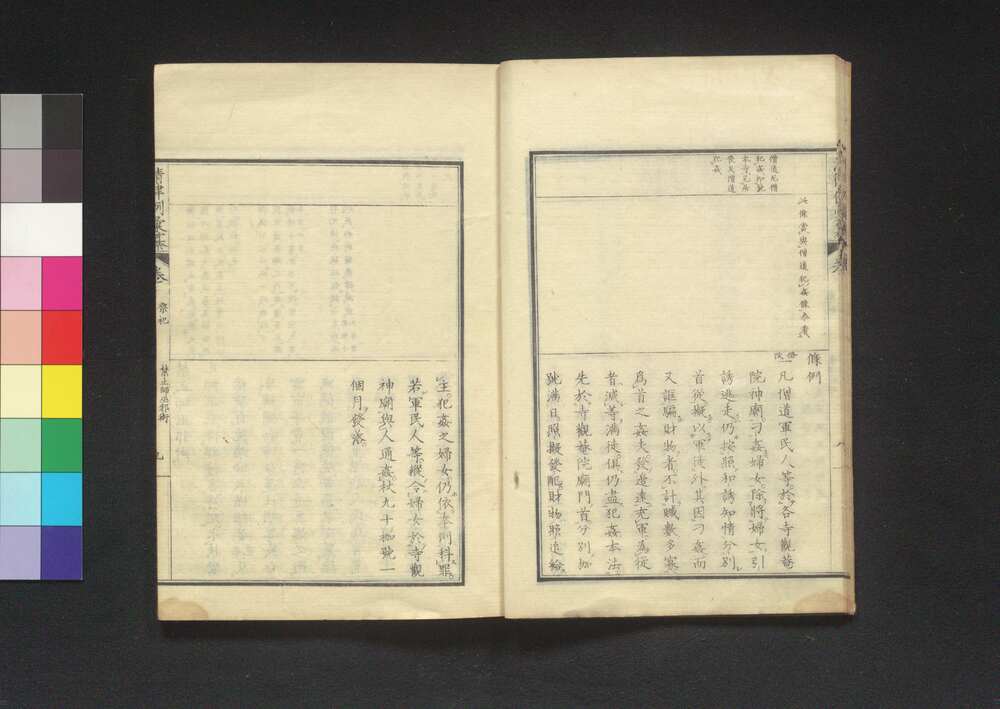 條例
一凡僧道軍民人等於各寺觀菴
院神廟刁姦婦女除將婦女引
誘逃走仍按照和誘知情分別
首從擬以軍徒外其因刁姦而
又誆騙財物者不計贓數多寡
爲首之姦夫發邊遠充軍爲從
者減等滿徒俱仍盡犯姦本法
先於寺觀菴院廟門首分別枷
號滿日照擬發配財物照追給
主犯姦之婦女仍依本例科罪
若軍民人等縱令婦女於寺觀
神廟與人通姦杖九十枷號一
個月發落
此條當與僧道犯姦條參看
僧道尼僧
犯姦
喪夫僧道
犯姦
清律例彙纂
卷
祭祀
禁止師巫邪術
九